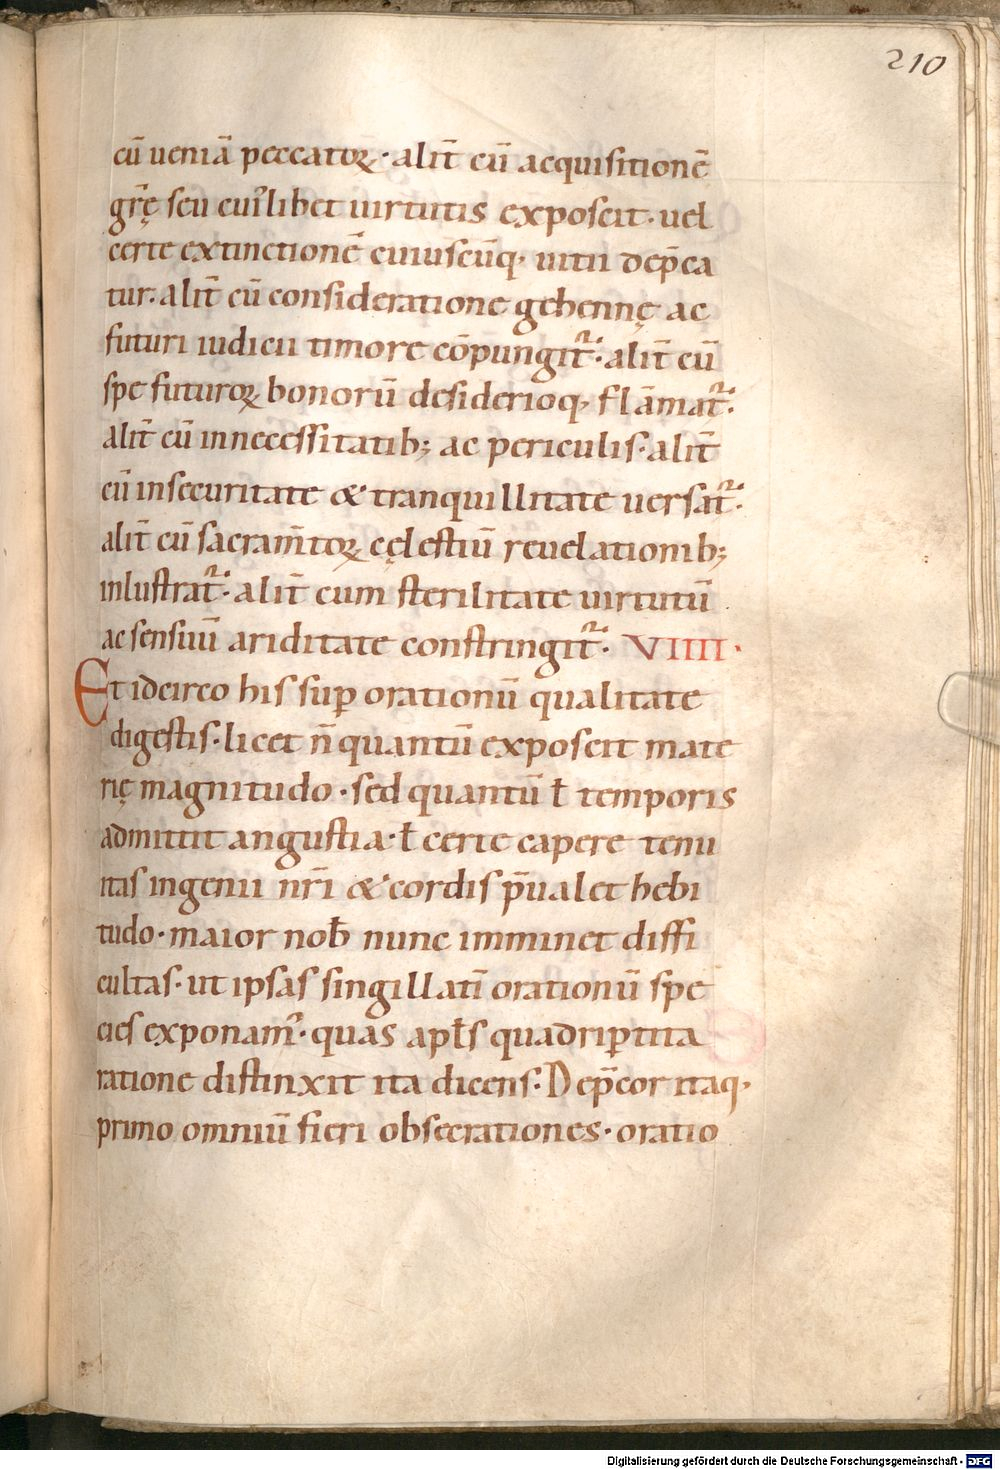 210
cū ueniā peccatoꝝ · alit̄ cū acquisitionē
gr̄ę seu cuı᷒libet uirtutis exposcit · uel
certe extinctionē cuiuscūq· uitii dep̄ca
tur · alit̄ cū consideratione gehennę ac
futuri iudicii timore cōpungit᷑ · alit̄ cū
spe futuroꝝ bonorū desiderioq· flāmat᷑ ·
alit̄ cū in necessitatib; ac periculis · alit̄
cū in securitate & tranquillitate uersat᷑ ·
alit̄ cū sacram̄toꝝ cęlestiū reuelationib;
inlustrat᷑ · alit̄ cum sterilitate uirtutū
ac sensuū ariditate constringit᷑ · VIIII ·
Et idcirco his suꝑ orationū qualitate
digestis · licet n̄ quantū exposcit mate
rię magnitudo · sed quantū ł temporis
admittit angustia · ł certe capere tenu
itas ingenii nr̄i & cordis p̄ualet hebi
tudo · maior nob̄ nunc imminet diffi
cultas · ut ipsas singillatī orationū spe
cies exponam᷒ · quas apłs quadriꝑtita
ratione distinxit ita dicens · Dep̄cor itaq·
primo omniū fieri obsecrationes · oratio
Digitalisierung gefördert durch die Deutsche Forschungsgemeinschaft - DFG